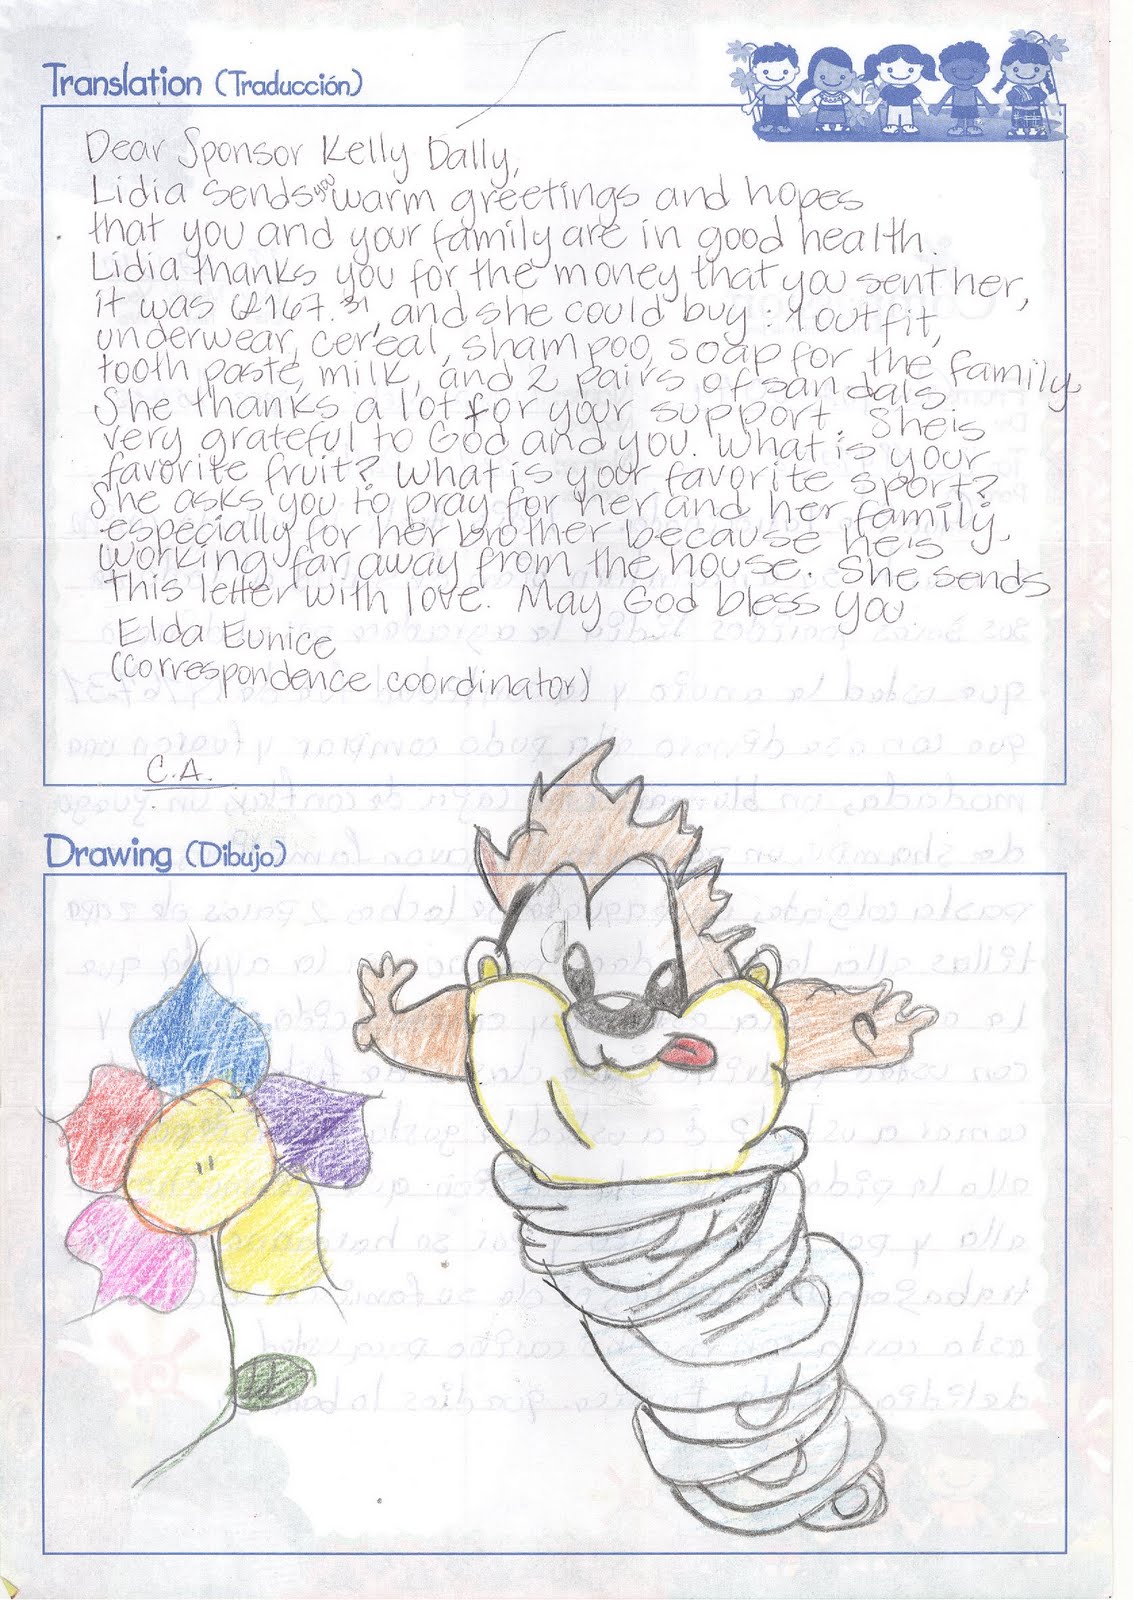 Translation (Traducción)
Dear Sponsor Kelly Dally,
Lidia sends you warm greetings and hopes
that you and your family are in good health.
Lidia thanks you for the money that you sent her,
it was Q167.31, and she could buy: 1 outfit,
underwear, cereal, shampoo, soap for the family,
tooth paste, milk, and 2 pairs of sandals.
She thanks a lot for your support. She is
very grateful to God and you. What is your
favorite fruit? What is your favorite sport?
She asks you to pray for her and her family,
especially for her brother because he is
working far away from the house. She sends
this letter with love. May God bless you
Elda Eunice
(correspondence coordinator)
C.A.
Drawing (Dibujo)